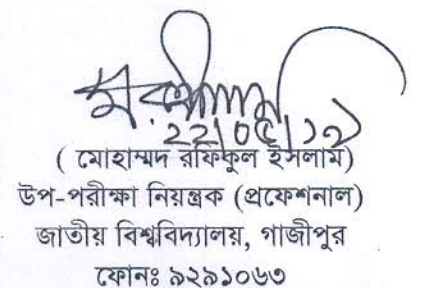 ২২/০৫/১৭
( মোহাম্মদ রফিকুল ইসলাম)
উপ-পরীক্ষা নিয়ন্ত্রক (প্রফেশনাল)
জাতীয় বিশ্ববিদ্যালয়, গাজীপুর
ফোনঃ ৯২৯১০৬৩